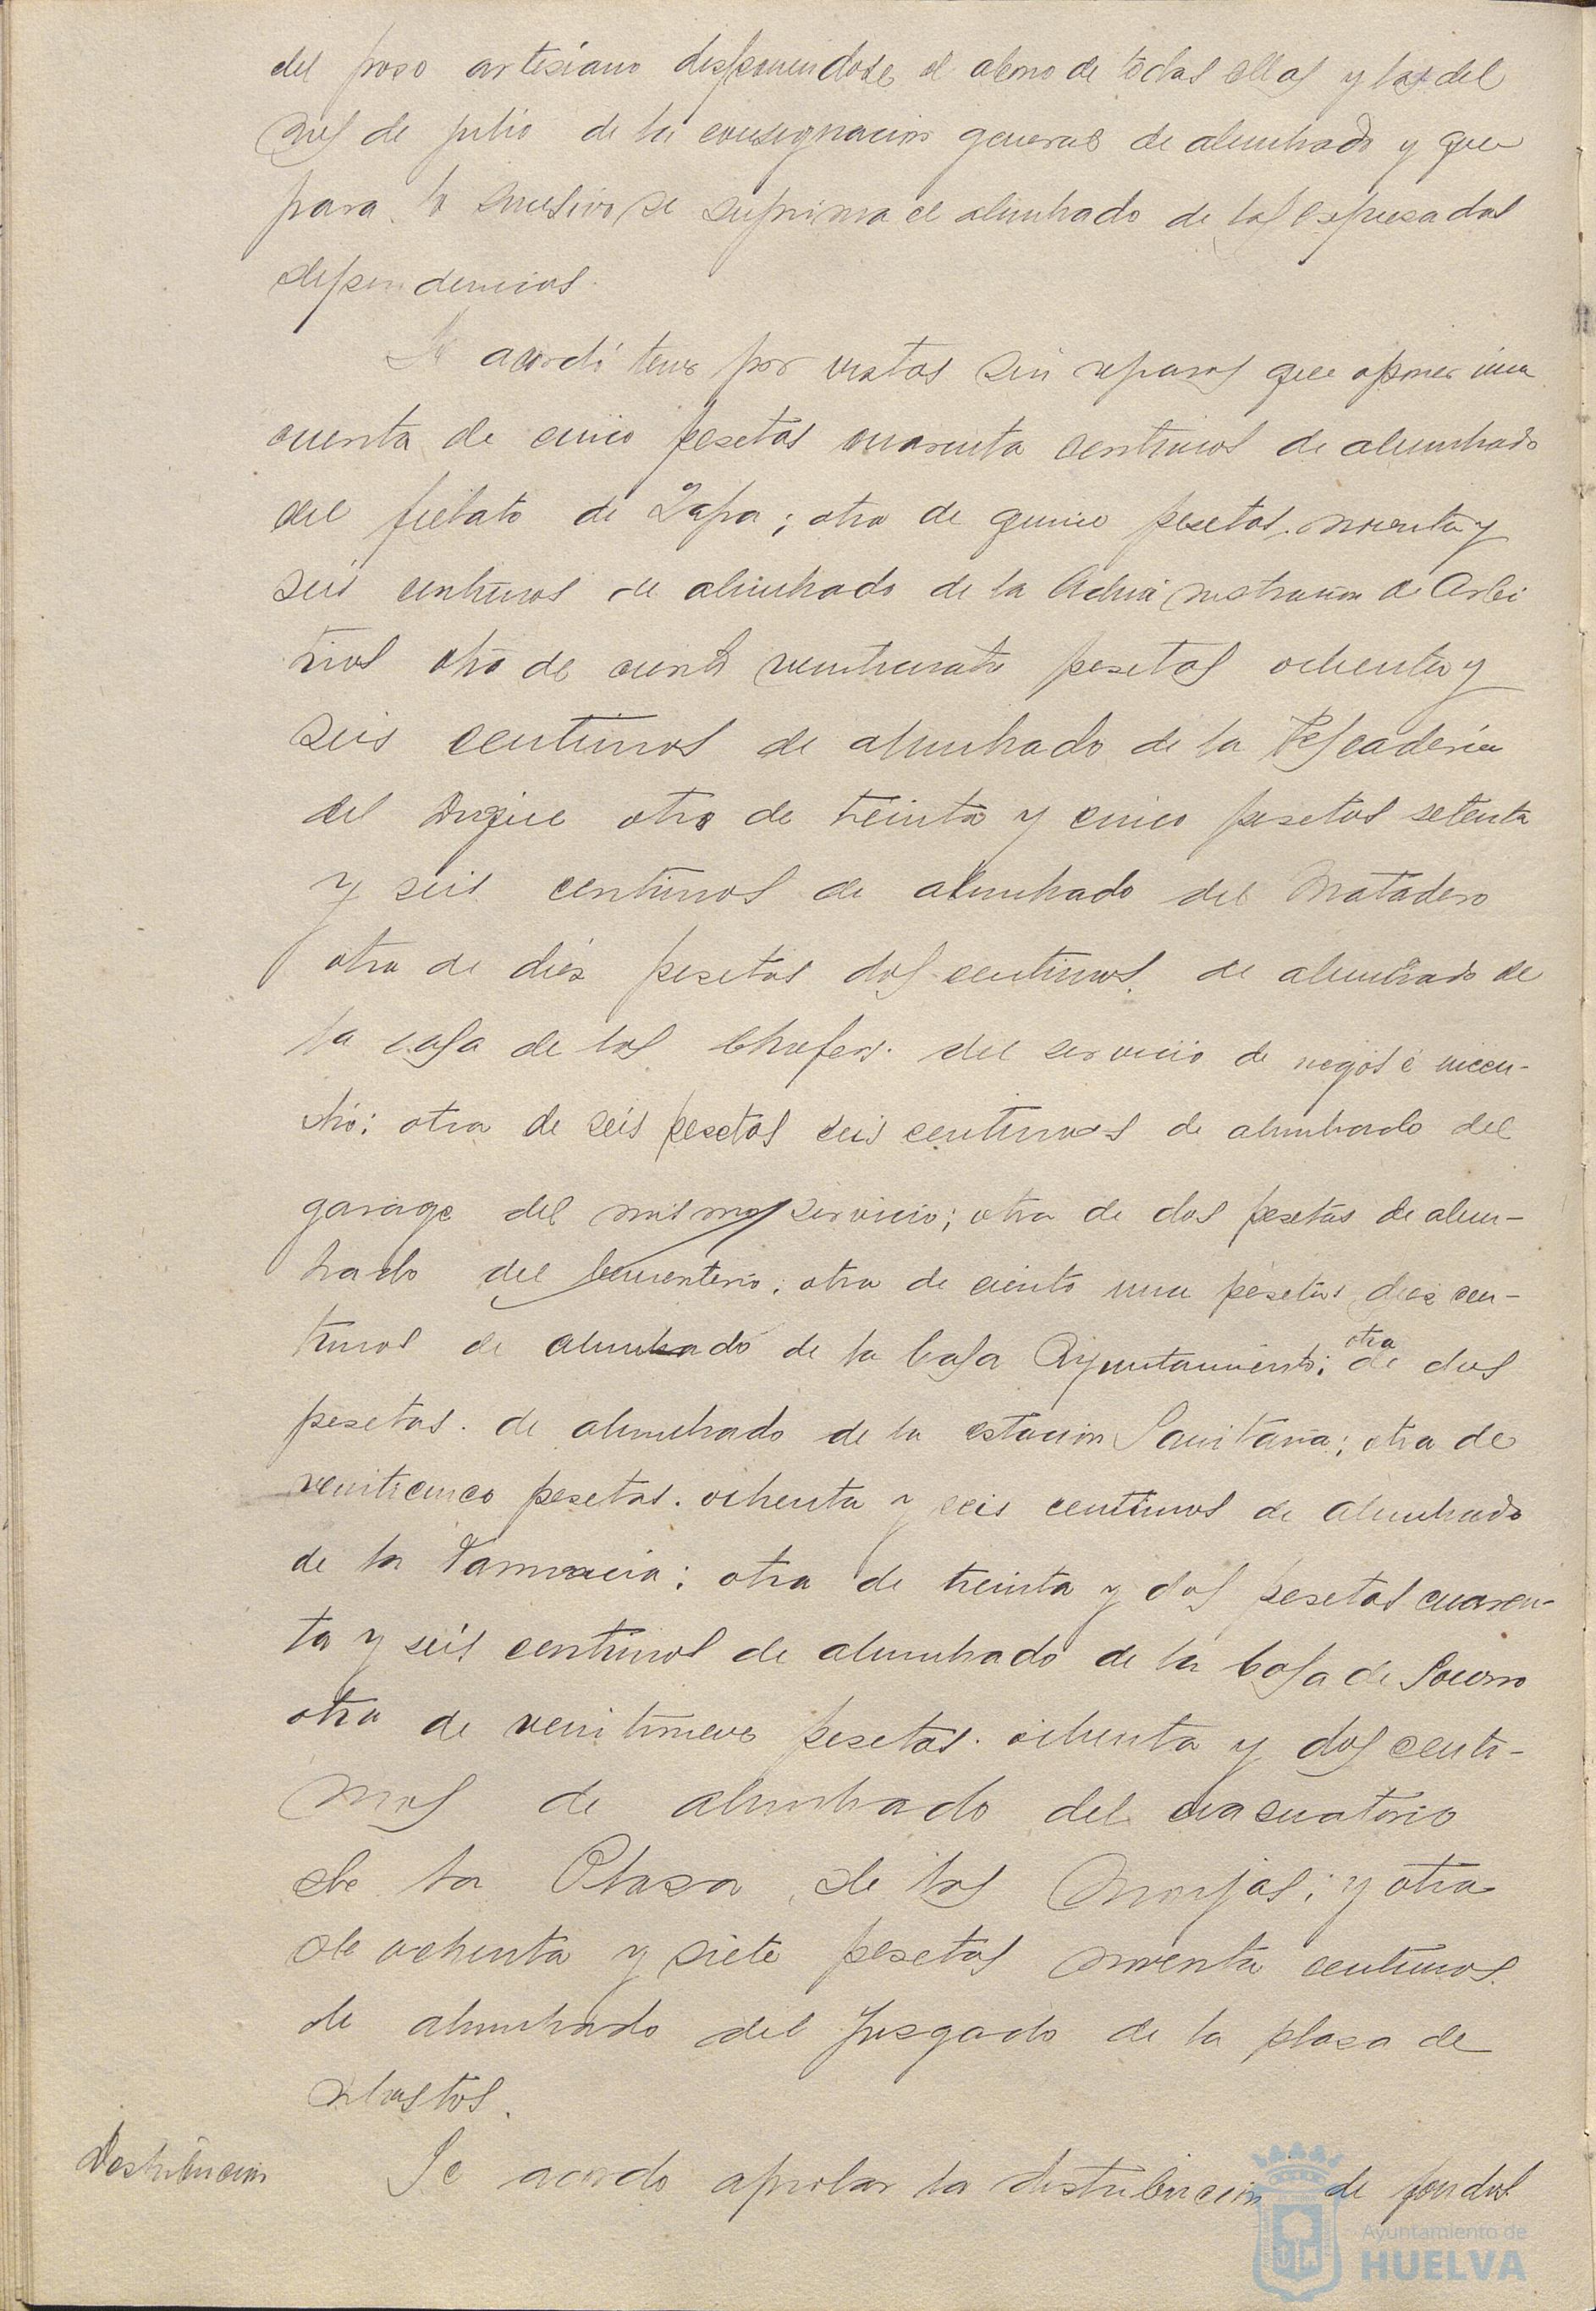 del poso artesiano disponiendose el abono de todas ellas y las del
mes de julio de la consignacion general de alumbrado y que
para lo sucesivo se suprima el alumbrado de las expresadas
dependencias.
Se acordó tener por vistas sin reparos que oponer una
cuenta de cinco pesetas cuarenta centimos de alumbrado
del fielato de Zafra; otra de quince pesetas noventa y
seis centimos de alumbrado de la Administracion de Arbi
trios otra de ciento veinticuatro pesetas ochenta y
seis centimos de alumbrado de la Pescaderia
del Dique otra de treinta y cinco pesetas setenta
y seis centimos de alumbrado del Matadero
otra de diez pesetas dos centimos de alumbrado de
la casa de los Chofers del servicio de riegos é incen-
dio; otra de seis pesetas seis centimos de alumbrado del
garage del mismo servicio; otra de dos pesetas de alum-
brado del Cementerio; otra de ciento una pesetas diez cen-
timos de alumbrado de la Casa Ayuntamiento; otra de dos
pesetas de alumbrado de la estacion Sanitaria; otra de
veinticinco pesetas ochenta y seis centimos de alumbrado
de la Farmacia; otra de treinta y dos pesetas cuaren-
ta y seis centimos de alumbrado de la Casa de Socorro
otra de veintinueve pesetas ochenta y dos centi-
mos de alumbrado del evacuatorio
de la Plasa de las Monjas; y otra
de ochenta y siete pesetas noventa centimos
de alumbrado del Jusgado de la plasa de
abastos.
Destribucion
Se acordo aprobar la distribucion de fondos
Ayuntamiento de
HUELVA